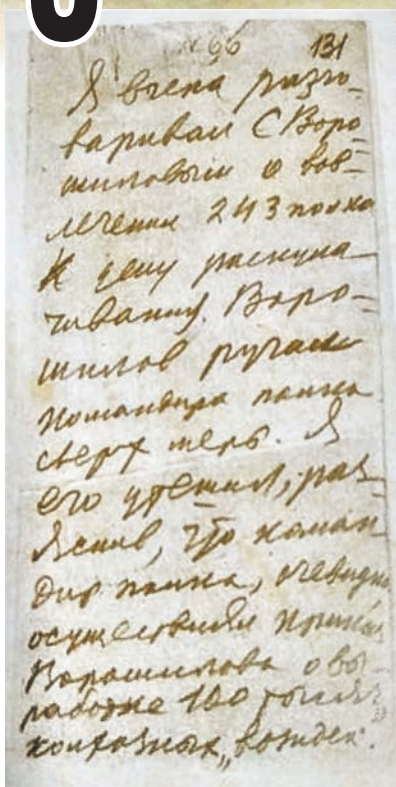 66 131
Я вчера разго-
варивал с Воро-
шиловым о вов-
лечении 243 полка
к делу раскула-
чивания. Воро-
шилов ругает
командира полка
сверх меры. Я
его утешил, раз-
яснив, что коман-
дир полка, очевидно
осуществлял приказ
Ворошилова о вы-
работке 100 тысяч
колхозных „вождей".